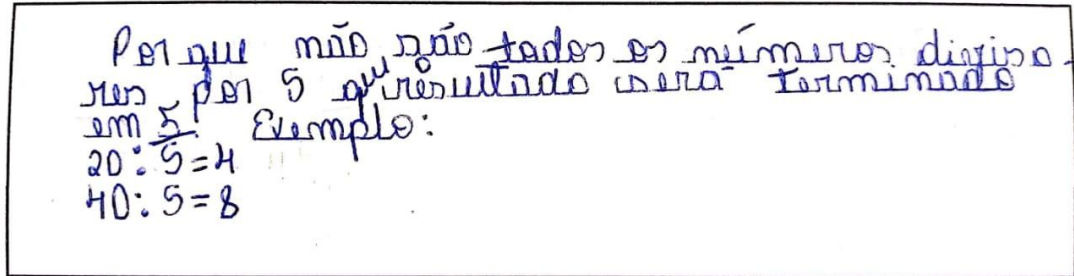 Por que não são todos os números diviso-
res por 5 que resultado será terminado
em 5. Exemplo:
20:5=4
40:5=8